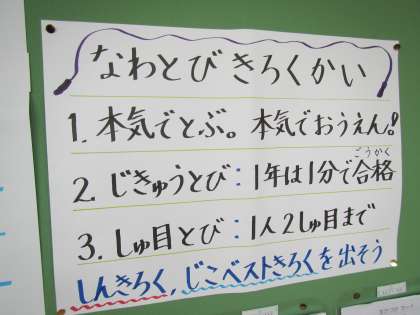 なわとびきろくかい
1. 本気でとぶ。本気でおうえん!
2. じきゅうとび：1年は1分で合格
ごうかく
3. しゅ目とび：1人2しゅ目まで
しんきろく,じこベストきろくを出そう